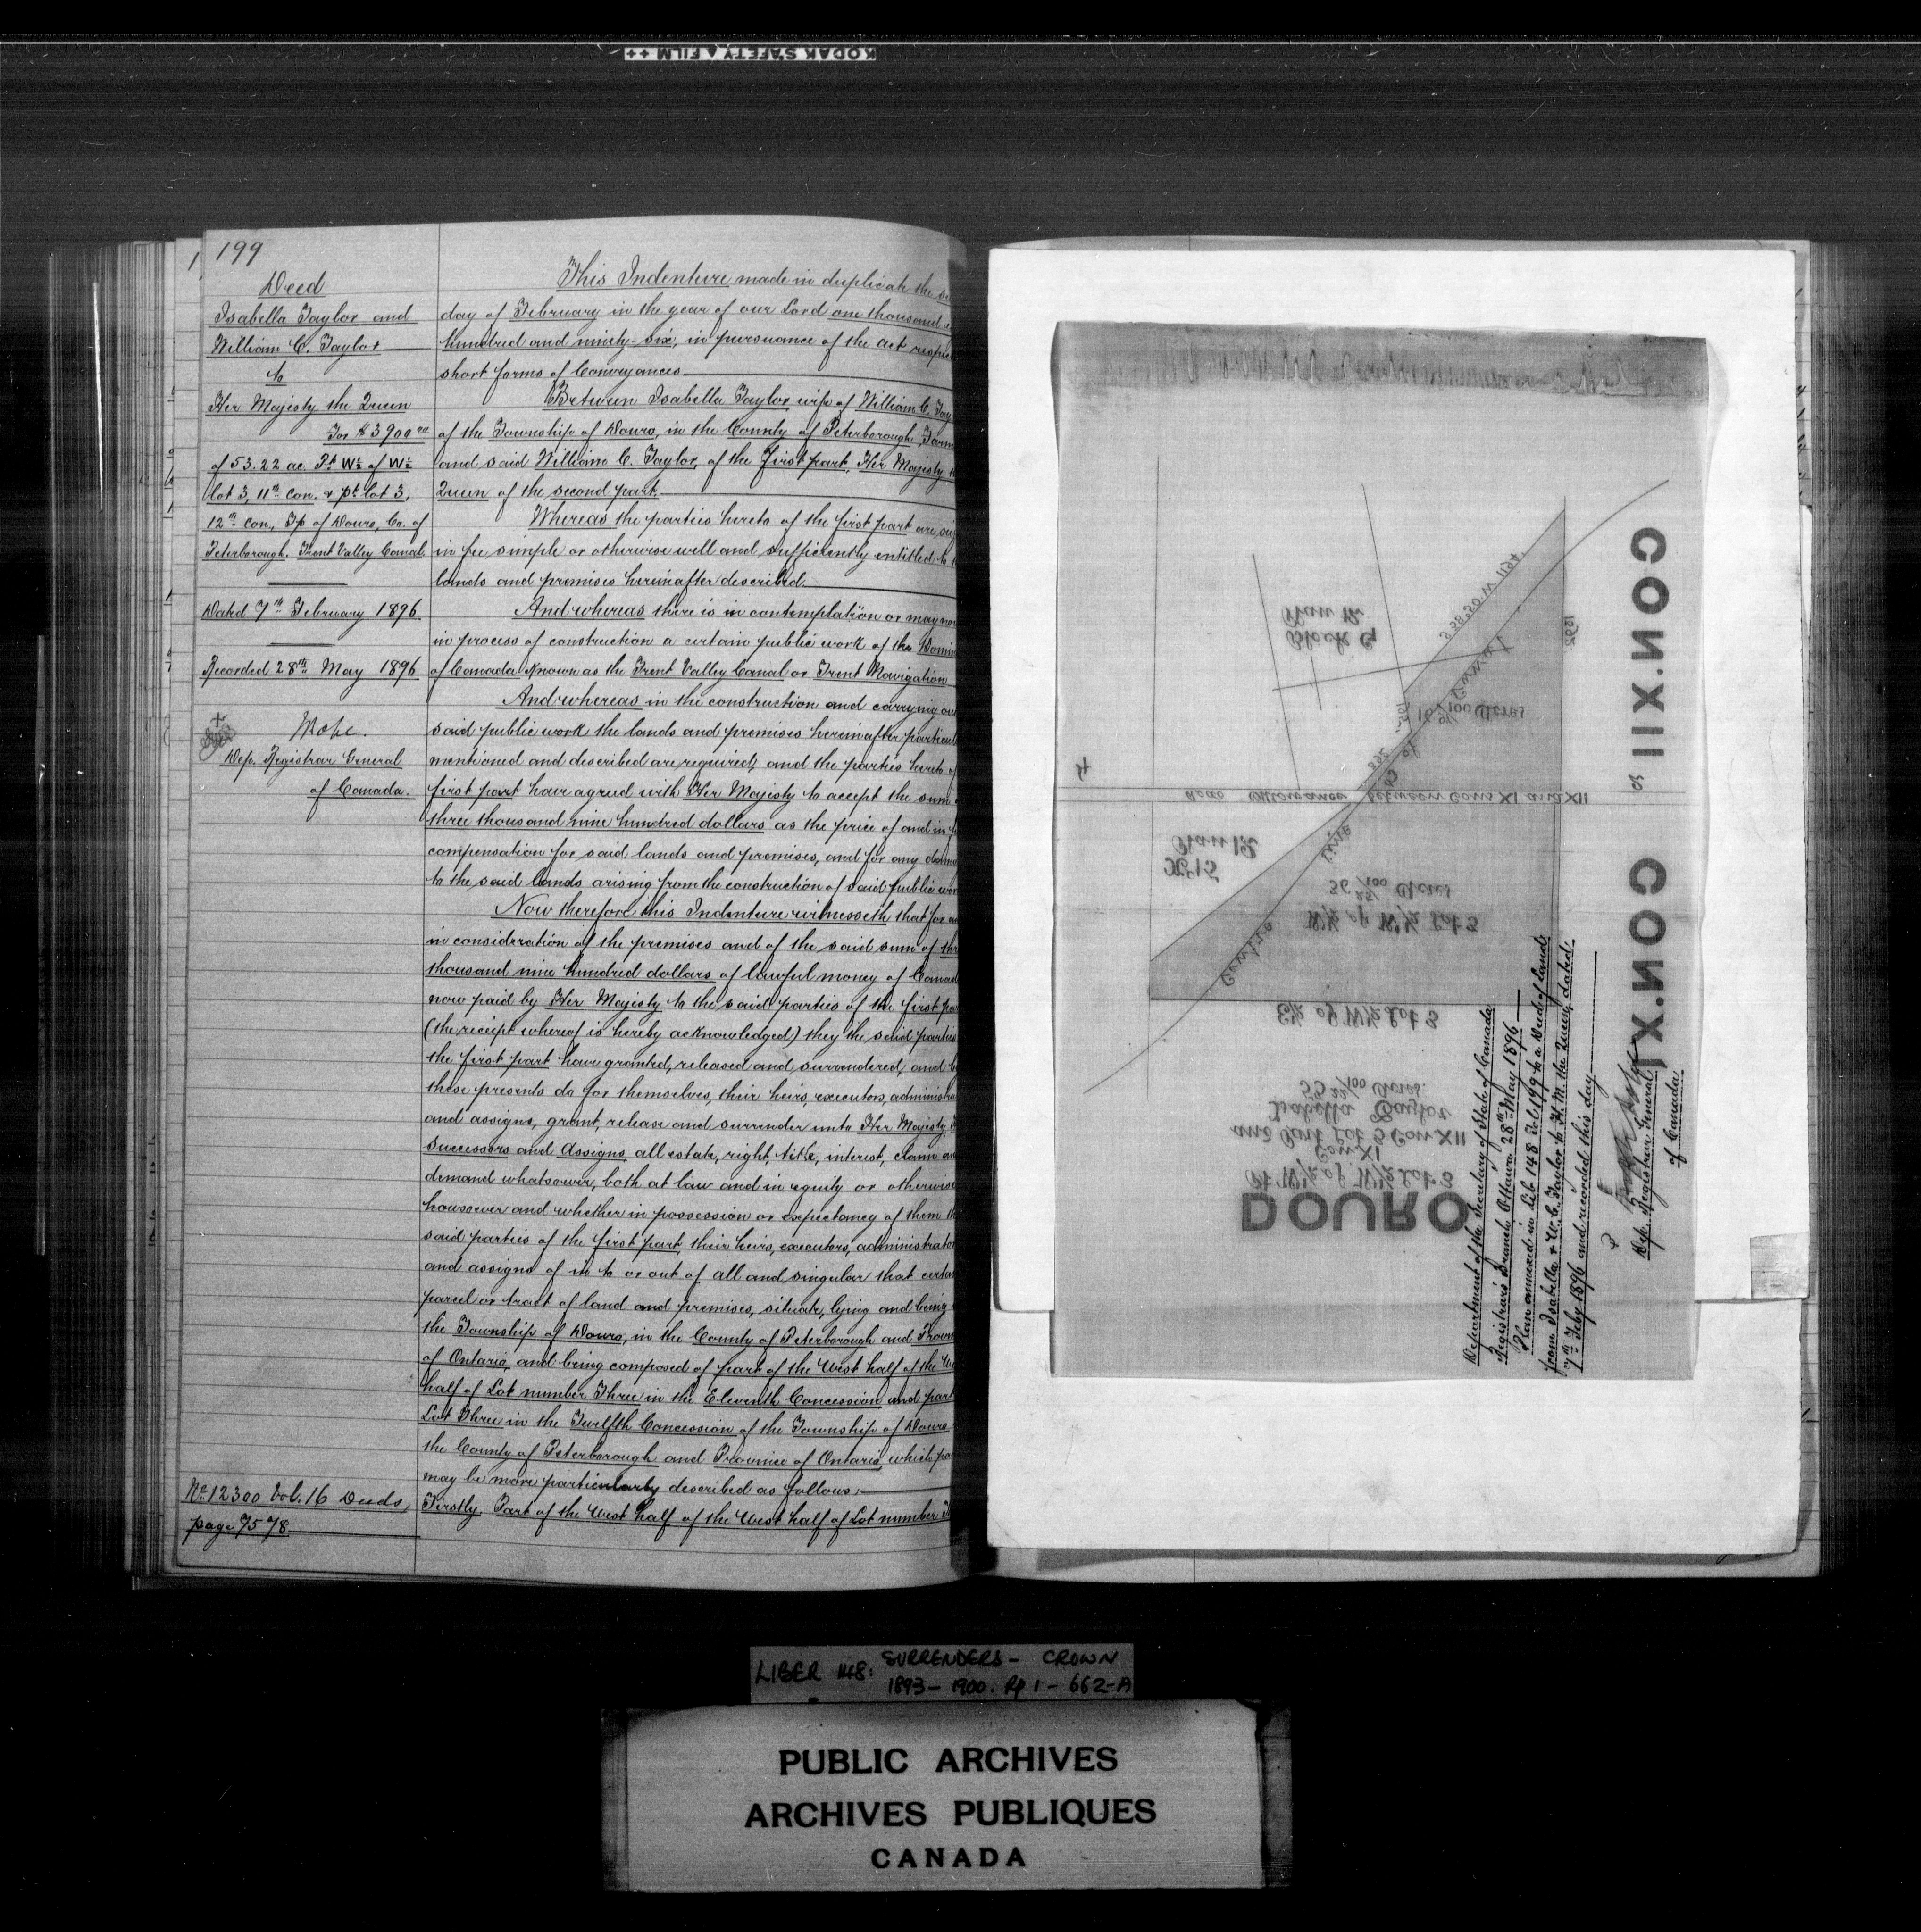 KODAK SAFETY FILM ++
199
Deed
Isabella Taylor and
William C. Taylor
to
Her Majesty the Queen
For $3900 00
of 53.22 ac. Pt W½ of W½
lot 3, 11th Con. & pt lot 3,
12th Con., Tp of Douro, Co. of
Peterborough. Trent Valley Canal
Dated 7th February 1896.
Recorded 28th May 1896
Dep. Registrar General
of Canada.
No 12300 Vol. 16 Deeds,
page 7578
This Indenture made in duplicate the
day of February in the year of our Lord one thousand
hundred and ninety-six, in pursuance of the act
short forms of Conveyances
Between Isabella Taylor, wife of William C.
of the Township of Douro, in the County of Peterborough,
and said William C. Taylor, of the first part, Her Majesty
Queen of the second part.
Whereas the parties hereto of the first part are
in fee simple or otherwise well and sufficiently entitled to
lands and premises hereinafter described.
And whereas there is in contemplation or may
in process of construction a certain public work of the
of Canada known as the Trent Valley Canal or Trent Navigation
And whereas in the construction and carrying
said public work the lands and premises hereinafter
mentioned and described are required, and the parties hereto
first part have agreed with Her Majesty to accept the sum
three thousand nine hundred dollars as the price of and in
compensation for said lands and premises, and for any
to the said lands arising from the construction of said public
Now therefore this Indenture witnesseth that for
in consideration of the premises and of the said sum of
thousand nine hundred dollars of lawful money of
now paid by Her Majesty to the said parties of the first
(the receipt whereof is hereby acknowledged) they the said parties
the first part have granted, released and surrendered, and
these presents do for themselves, their heirs, executors,
and assigns, grant, release and surrender unto Her Majesty
Successors and Assigns, all estate, right, title, interest, claim
demand whatsoever, both at law and in equity or otherwise
howsoever and whether in possession or expectancy of them
said parties of the first part, their heirs, executors,
and assigns of in to or out of all and singular that
parcel or tract of land and premises, situate, lying and being
the Township of Douro, in the County of Peterborough and
of Ontario, and being composed of part of the West half of the
half of Lot number Three in the Eleventh Concession and part
Lot Three in the Twelfth Concession of the Township of Douro
the County of Peterborough and Province of Ontario, which
may be more particularly described as follows:
Firstly. Part of the West half of the West half of Lot number
CON. XII
CON. XI
Plan 12
Block G
S 58.50 W 1194
1592
16 97/100 Acres
Road Allowance between Cons XI and XII
4
Centre Line of Canal
Plan 12
No 15
36 25/100 Acres
W½ of W½ Lot 3
E½ of W½ Lot 3
53 22/100 Acres.
Isabella Taylor
and Part Lot 3 Con XII
Con XI
Pt W½ of W½ Lot 3
DOURO
Department of the Secretary of State of Canada
Registrar's Branch Ottawa 28th May 1896
Plan annexed in Lib 148 Fol 199 to a Deed of Land
from Isabella & W. C. Taylor to H. M. the Queen, dated
7th Feby 1896 and recorded this day
Dep. Registrar General
of Canada
LIBER 148: SURRENDERS - CROWN
1893 - 1900. Pp 1 - 662-A
PUBLIC ARCHIVES
ARCHIVES PUBLIQUES
CANADA